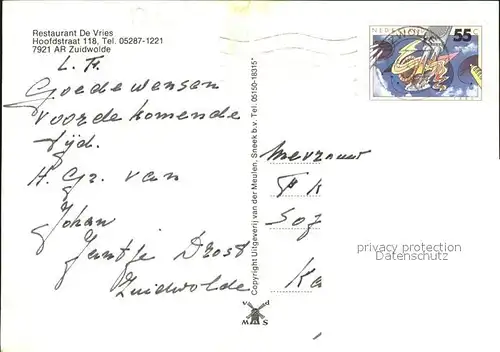 Restaurant De Vries
Hoofdstraat 118, Tel. 05287-1221
7921 AR Zuidwolde
L. F.
Goede wensen
voor de komende
tijd.
H. Gr. van
Johan
Jantje Drost
Zuidwolde
Copyright Uitgeverij van der Meulen, Sneek b.v. Tel. 05150-18315*
v d
M S
ZWOLLE
NEDERLAND
55
F K
Soj
Ka
privacy protection
Datenschutz